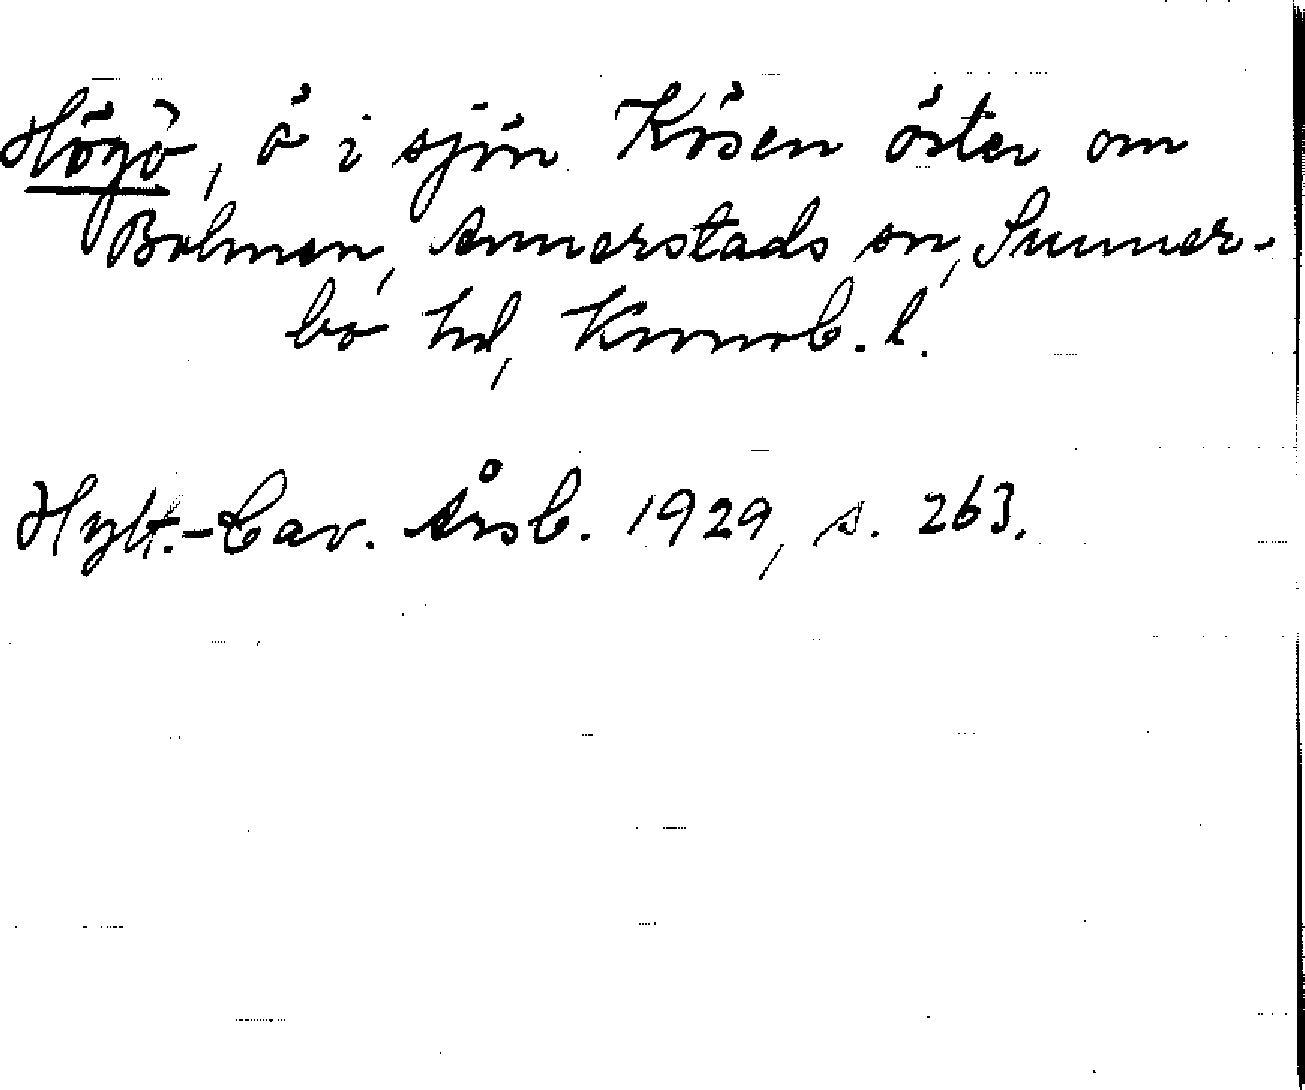 Högö, ö i sjön Kösen öster om
Bolmen, Annerstads sn, Sunner-
bo hd, Kronob. l.
Hylt.-Cav. Årsb. 1929, s. 263.